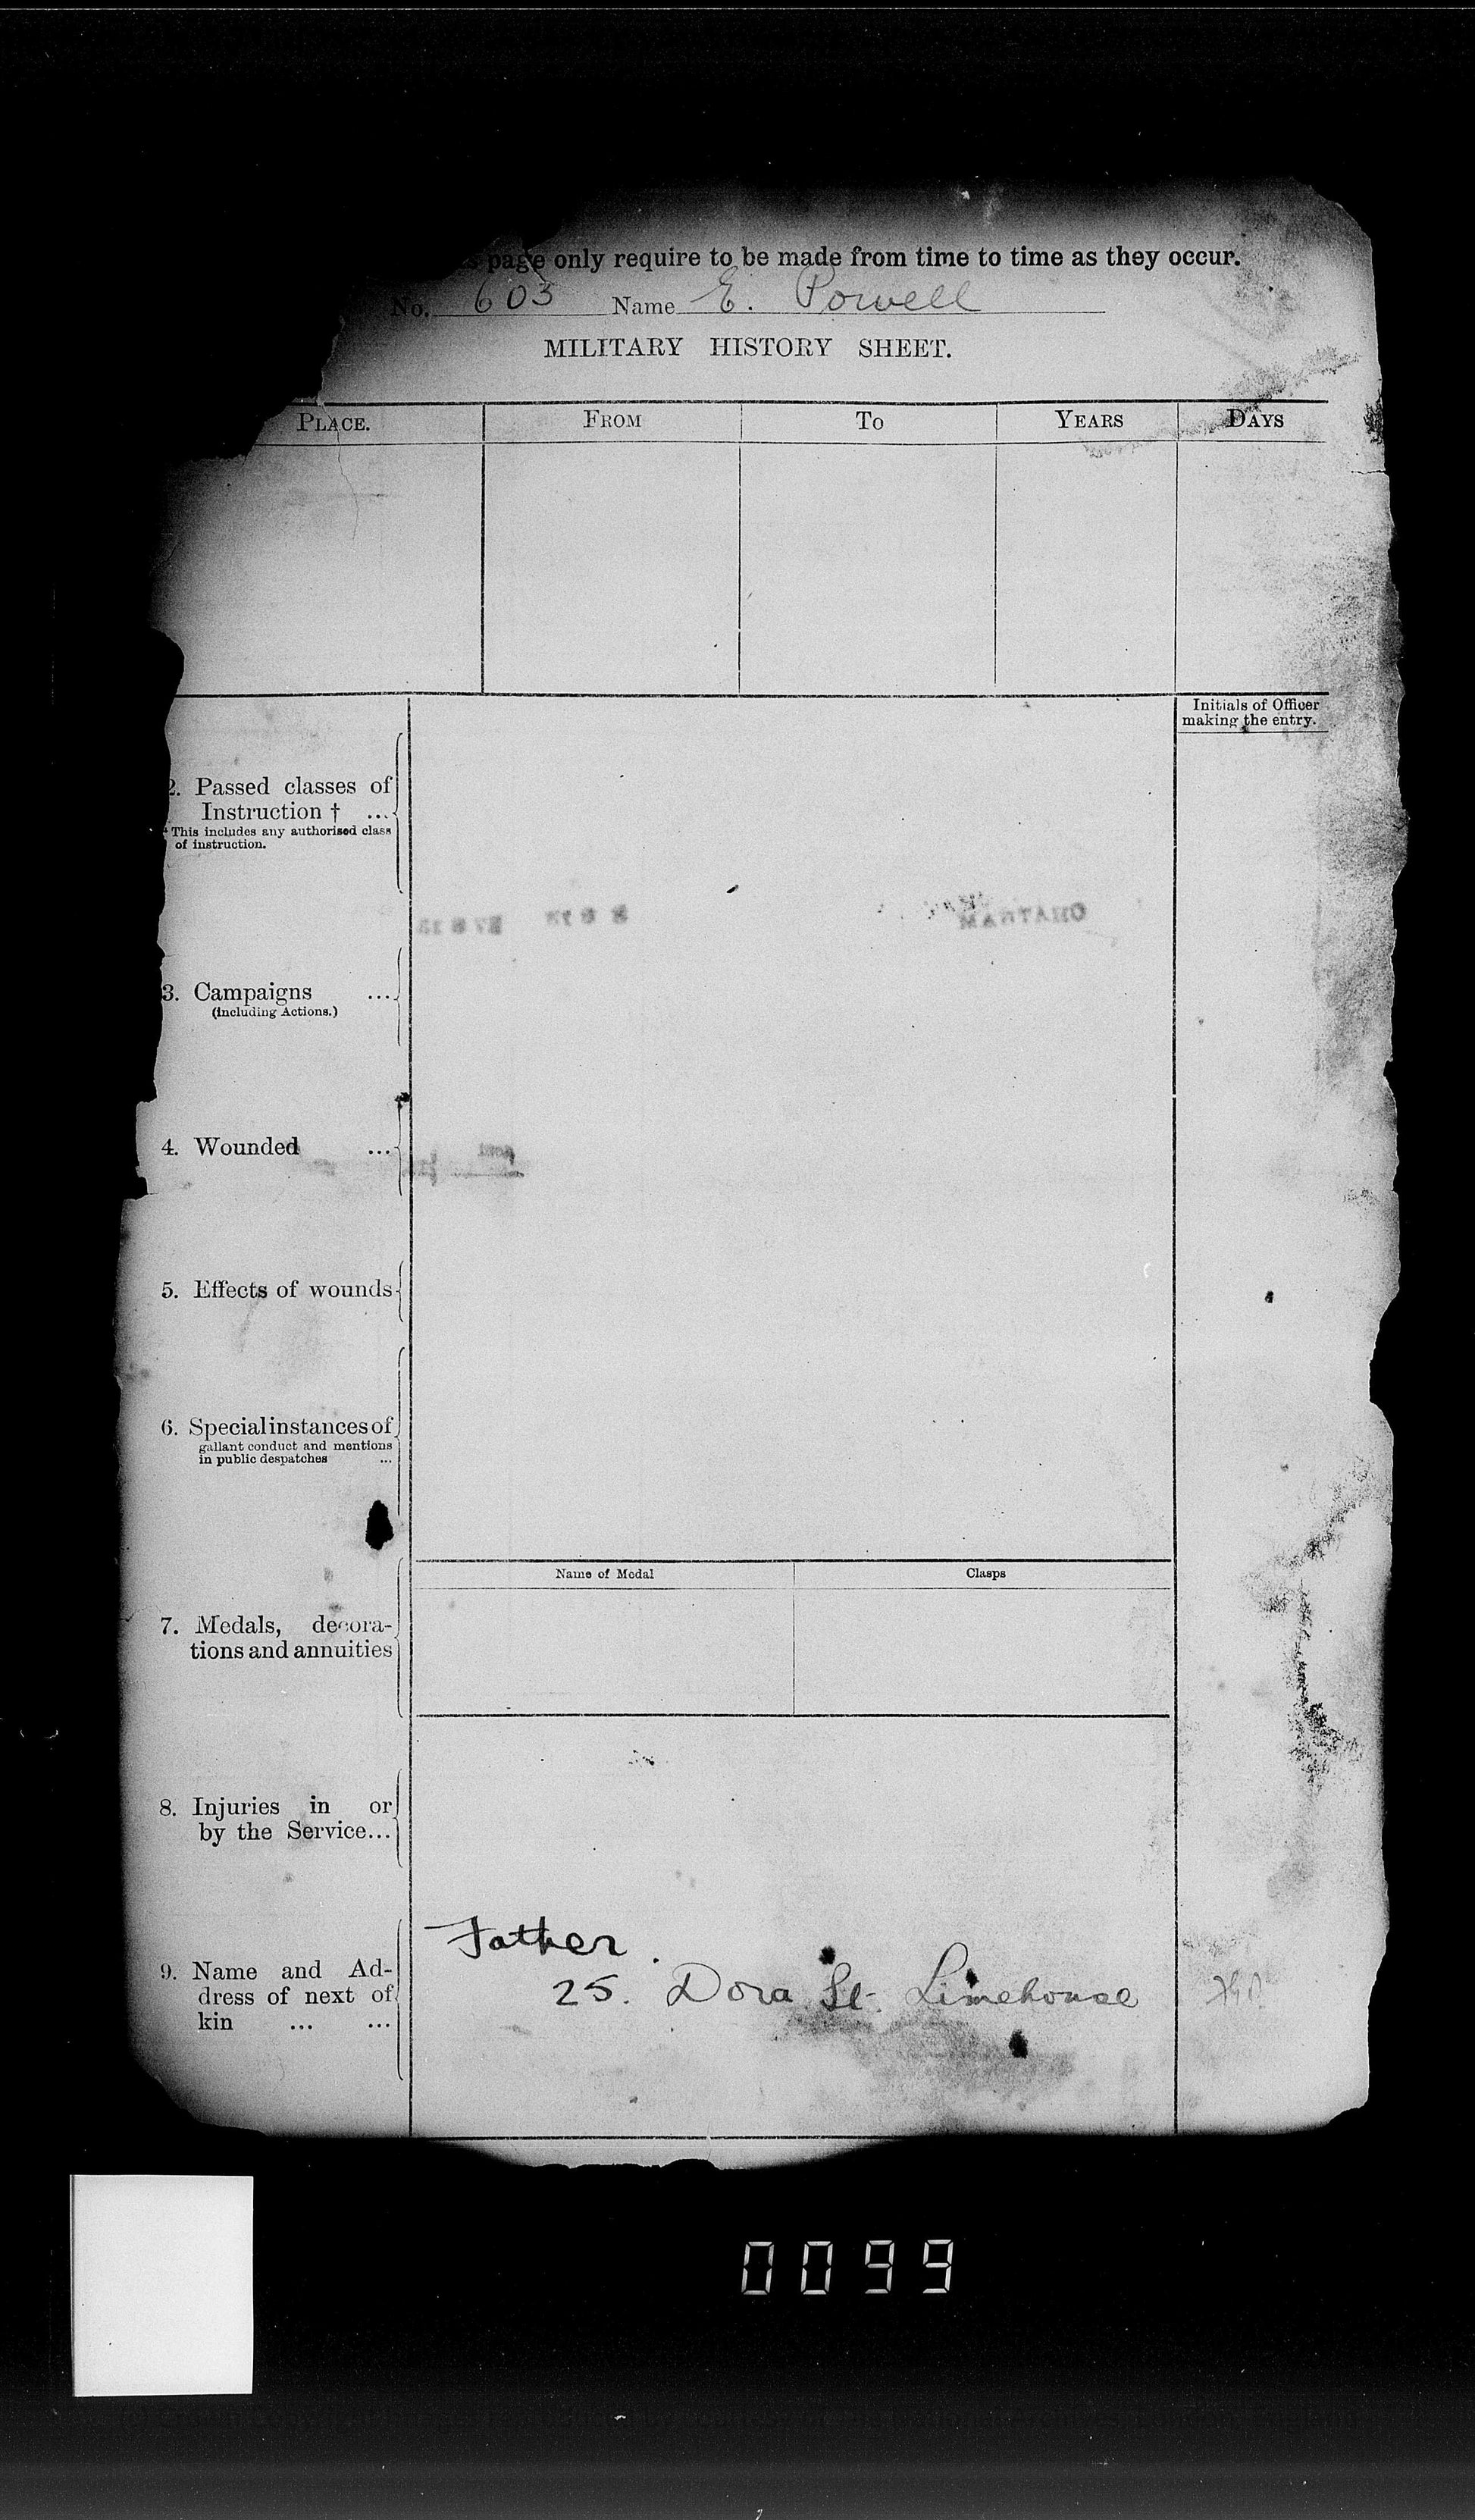 page only require to be made from time to time as they occur.
No. 603 Name E. Powell
MILITARY HISTORY SHEET.
PLACE. FROM TO YEARS DAYS
Initials of Officer
making the entry.
2. Passed classes of
Instruction † ...
† This includes any authorised class
of instruction.
CHATHAM
3. Campaigns ...
(including Actions.)
4. Wounded ...
5. Effects of wounds
6. Special instances of
gallant conduct and mentions
in public despatches ...
Name of Medal Clasps
7. Medals, decora-
tions and annuities
8. Injuries in or
by the Service...
Father.
9. Name and Ad-
dress of next of
kin ... ...
25. Dora St. Limehouse
0099